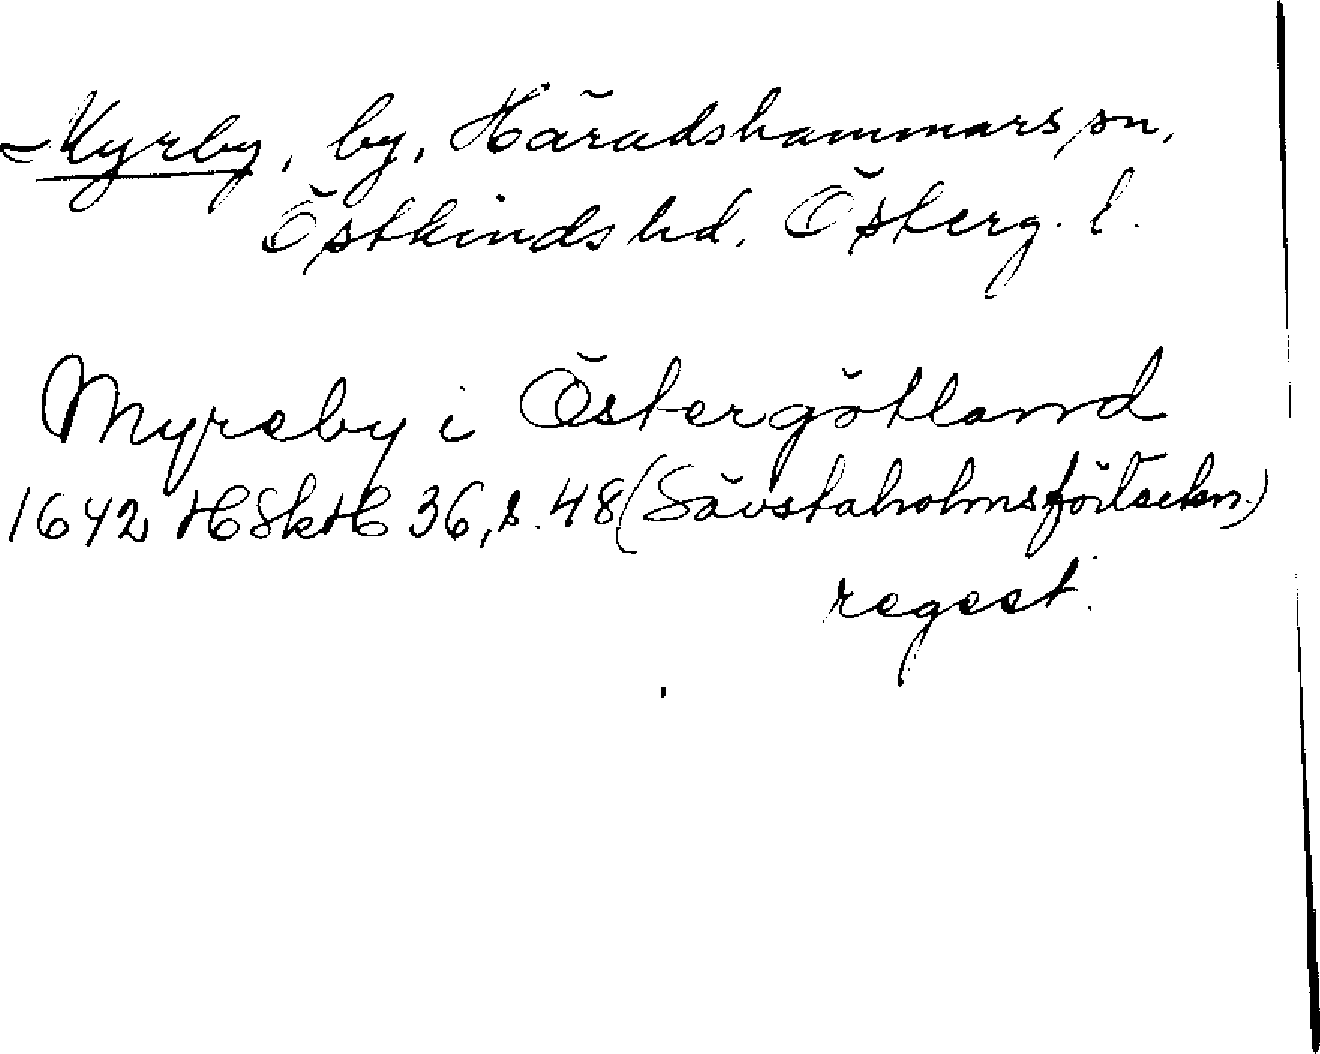 Myrby, by, Häradshammars sn,
Östkinds hd. Österg. l.
Myreby i Östergötland
1642 HSkH 36, s. 48 (Sävstaholmsförtsekn.)
regest.